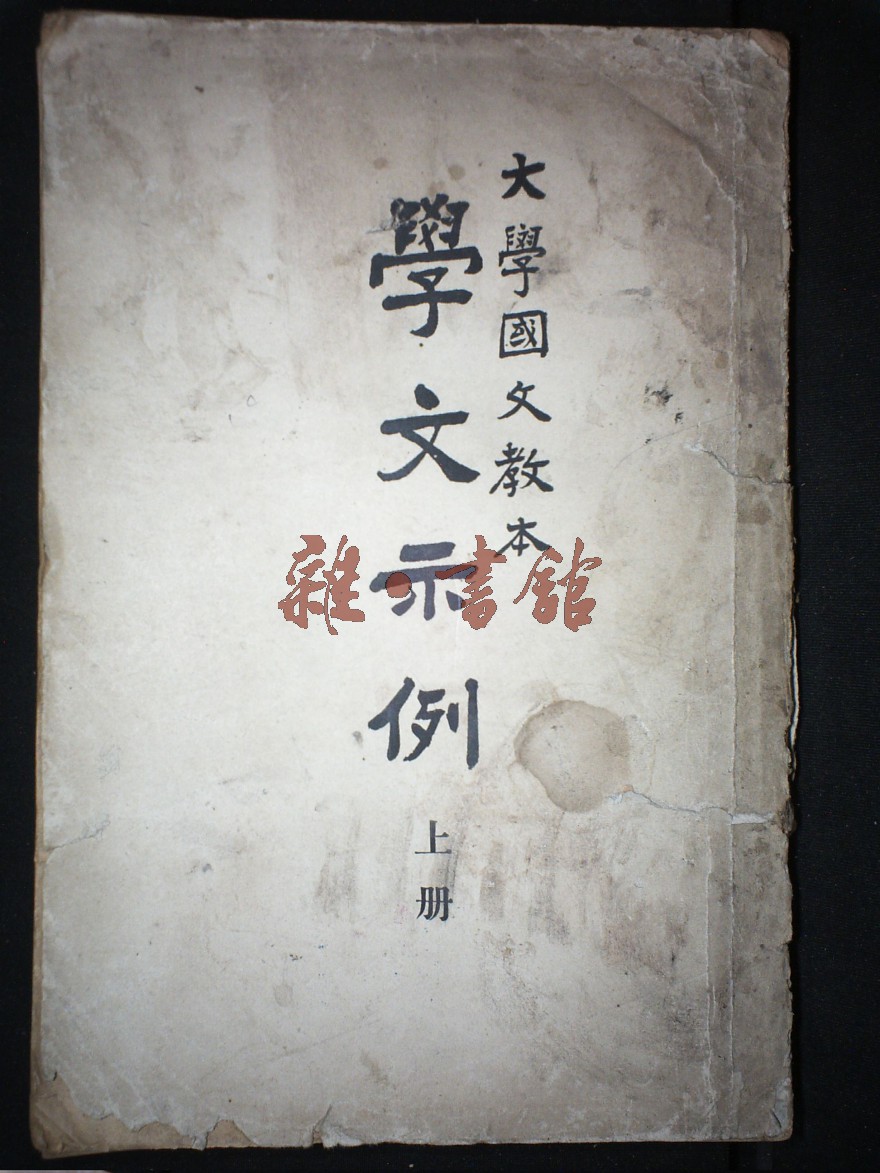 大學國文教本
學文示例
上册
雜·書館